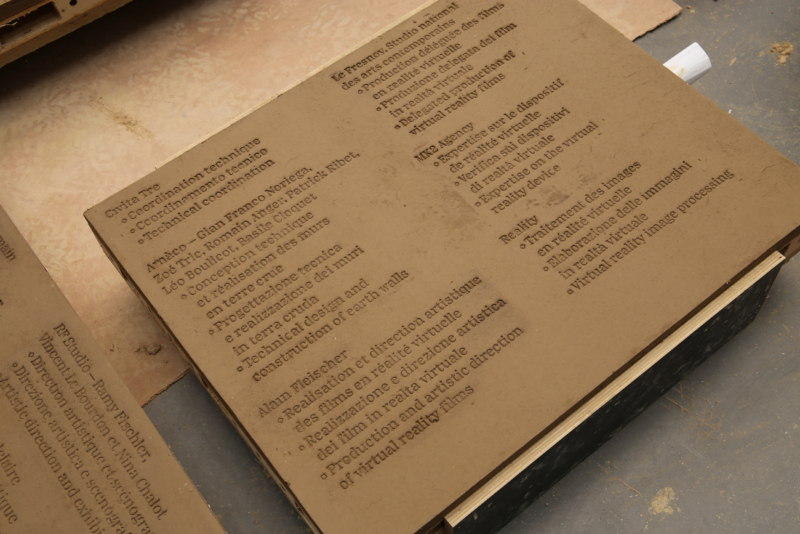 Civita Tre
Coordination technique
Coordinamento tecnico
Technical coordination
Amàco – Gian Franco Noriega,
Zoé Tric, Romain Anger, Patrick Ribet,
Léo Boulicot, Basile Cloquet
Conception technique
et réalisation des murs
en terre crue
Progettazione tecnica
e realizzazione dei muri
in terra cruda
Technical design and
construction of earth walls
Alain Fleischer
Réalisation et direction artistique
des films en réalité virtuelle
Realizzazione e direzione artistica
dei film in realta virtuale
Production and artistic direction
of virtual reality films
Le Fresnoy, Studio national
des arts contemporains
Production déléguée des films
en réalité virtuelle
Produzione delegata dei film
in realtà virtuale
Delegated production of
virtual reality films
MK2 Agency
Expertise sur le dispositif
de réalité virtuelle
Verifica sui dispositivi
di realtà virtuale
Expertise on the virtual
reality device
Reality
Traitement des images
en réalité virtuelle
Elaborazione delle immagini
in realtà virtuale
Virtual reality image processing
RF Studio – Ramy Fischler,
Vincent Le Bourdon et Nina Chalot
Direction artistique et scénogra
Direzione artistica e scenogra
Artistic direction and exhibi